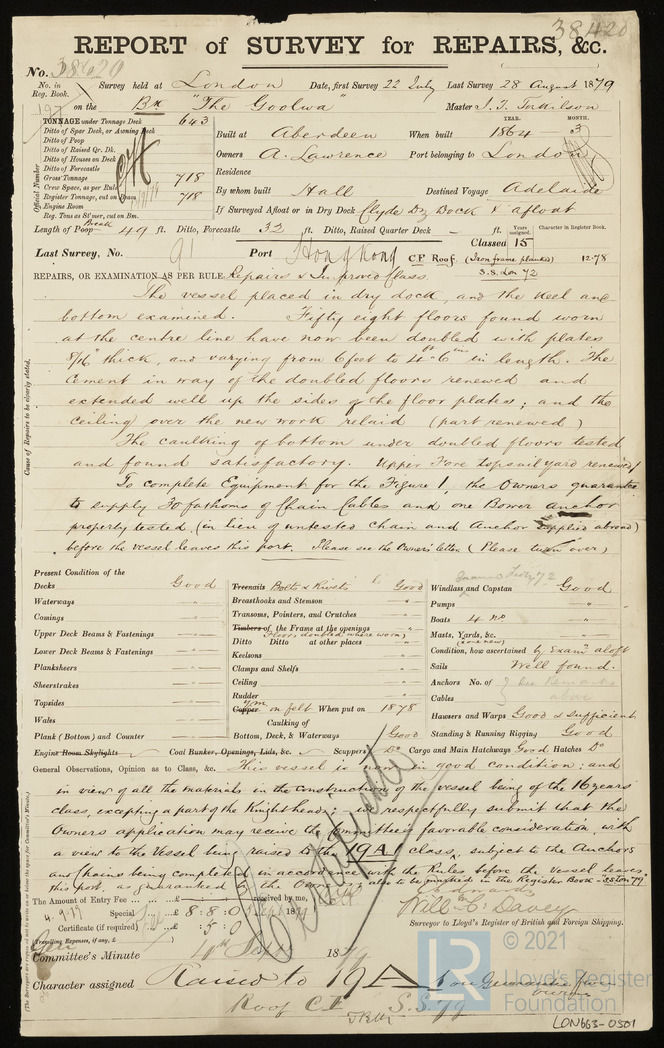 38420
REPORT of SURVEY for REPAIRS, &c.
No. 38420
No. in Reg. Book. Survey held at London Date, first Survey 22 July Last Survey 28 August 1879
197 on the Bk "The Goolwa" Master J. T.
TONNAGE under Tonnage Deck 643
Ditto of Spar Deck, or Awning Deck
Ditto of Poop
Ditto of Raised Qr. Dk.
Ditto of Houses on Deck
Ditto of Forecastle
Gross Tonnage 718
Crew Space, as per Rule
Register Tonnage, cut on Beam 718
Engine Room
Reg. Tons as St'mer, cut on Bm.
Official Number
YEAR. MONTH.
Built at Aberdeen When built 1864 3
Owners A. Lawrence Port belonging to London
Residence
By whom built Hall Destined Voyage Adelaide
If Surveyed Afloat or in Dry Dock Clyde Dry Dock & afloat
Length of Poop Break 49 ft. Ditto, Forecastle 32 ft. Ditto, Raised Quarter Deck - ft. Years assigned. Character in Register Book.
Last Survey, No. 91 Port Hong Kong Classed 15
CF Roof. (Iron frame planked) 12.78
S.S. Lon 72
REPAIRS, OR EXAMINATION AS PER RULE Repairs & Improved Class.
The vessel placed in dry dock, and the keel and
bottom examined. Fifty eight floors found worn
at the centre line have now been doubled with plates
8/16 thick, and varying from 6 feet to 4ft 6in in length. The
cement in way of the doubled floors renewed and
extended well up the sides of the floor plates; and the
ceiling over the new work relaid (part renewed)
The caulking of bottom under doubled floors tested
and found satisfactory. Upper Fore topsail yard renewed
To complete Equipment for the Figure 1, the Owners guarantee
to supply 30 fathoms of Chain Cables and one Bower anchor
properly tested (in lieu of untested chain and Anchor supplied abroad)
before the vessel leaves this port. Please see the Owner's letter (Please turn over)
Cause of Repairs to be clearly stated.
Present Condition of the
Decks Good
Waterways "
Comings "
Upper Deck Beams & Fastenings "
Lower Deck Beams & Fastenings "
Planksheers "
Sheerstrakes "
Topsides "
Wales "
Plank (Bottom) and Counter "
Treenails Bolts & Rivets Good
Breasthooks and Stemson "
Transoms, Pointers, and Crutches "
Timbers of the Frame at the openings "
(Floors doubled where worn)
Ditto Ditto at other places "
Keelsons "
Clamps and Shelfs "
Ceiling "
Rudder "
Copper YM on felt When put on 1878
Caulking of
Bottom, Deck, & Waterways Good
Windlass and Capstan Good
Pumps "
Boats 4 no "
Masts, Yards, &c. "
(one new)
Condition, how ascertained by Examn aloft
Sails Well found.
Anchors No. of } See Remarks
Cables } above
Hawsers and Warps Good & sufficient
Standing & Running Rigging Good
Engine Room Skylights Coal Bunker, Openings, Lids, &c. Scuppers Do Cargo and Main Hatchways Good Hatches Do
General Observations, Opinion as to Class, &c. This vessel is now in good condition; and
in view of all the materials in the construction of the vessel being of the 16 years
class, excepting a part of the Knightheads; we respectfully submit that the
Owners application may receive the Committee's favorable consideration, with
a view to the Vessel being raised to the 19A1 class, subject to the Anchors
and Chains being completed in accordance with the Rules before the vessel leaves
this port, as guaranteed by the Owners
The Amount of Entry Fee ... £ received by me,
Special ... £ 8 : 8 : 0
Certificate (if required) £ : 5 : 0
(Travelling Expenses, if any, £ )
4.9.79
Will. C. Davey
Surveyor to Lloyd's Register of British and Foreign Shipping.
Committee's Minute 4th Sept 1879
Character assigned Raised to 19A1
Roof C.F. S.S. 79
LR © 2021
Lloyd's Register
Foundation
LON663-0301